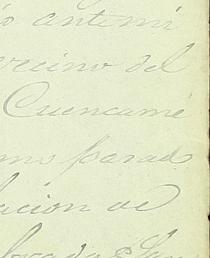 ó ante mi
vecino del
Cuencamé
mo parado
lación de